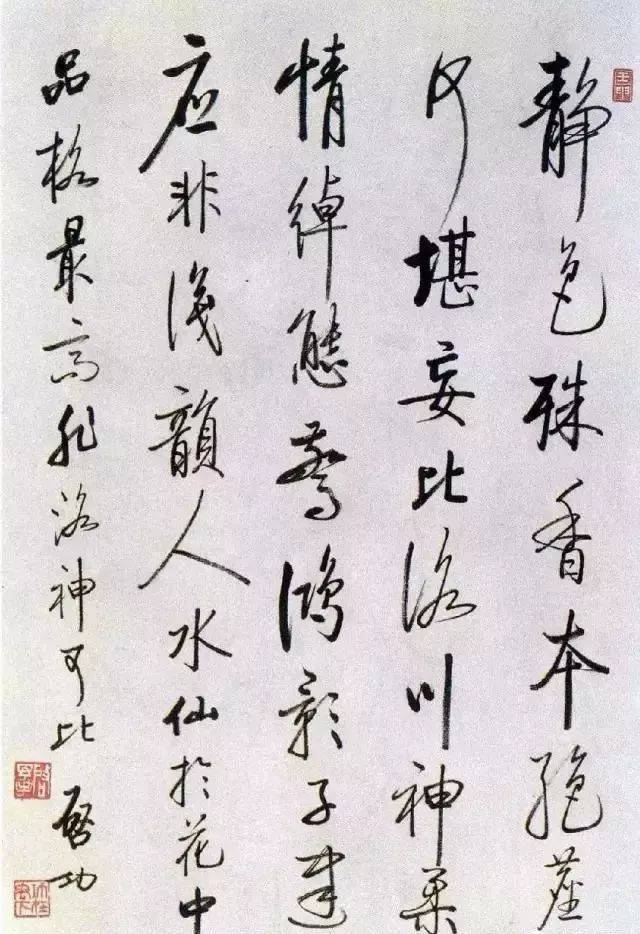 静色殊香本絶尘
何堪妄比洛川神柔
情绰態驚鴻影子建
应非浅韻人水仙於花中
品格最高非洛神可比 启功